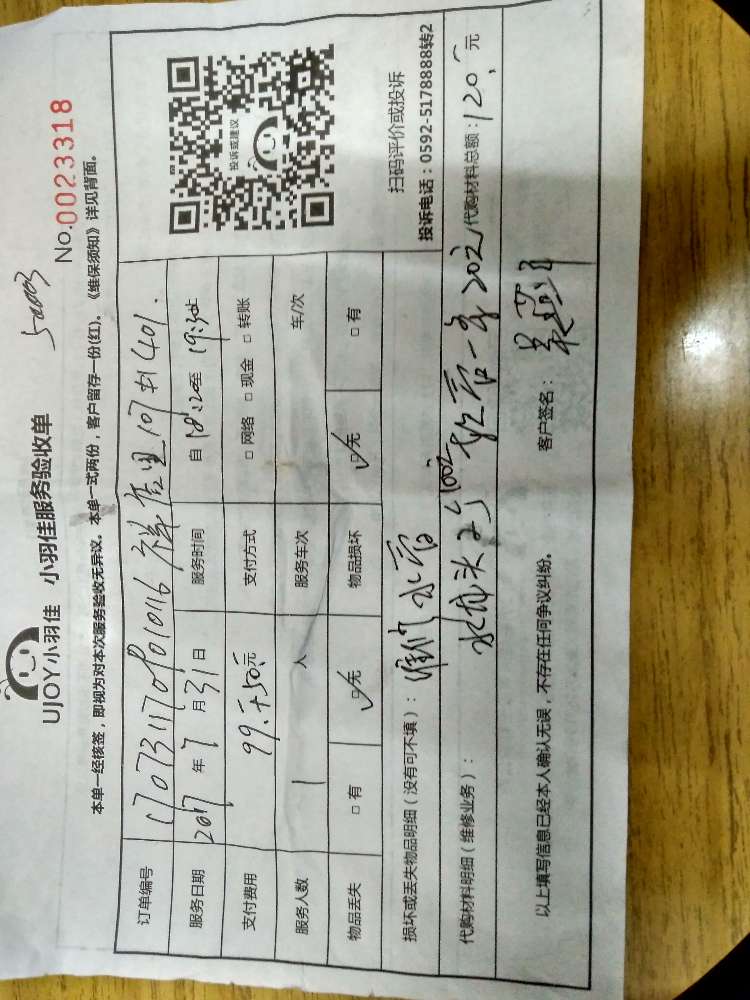 UJOY小羽佳 小羽佳服务验收单
50003
No.0023318
本单一经核签，即视为对本次服务验收无异议。本单一式两份，客户留存一份(红)。《维保须知》详见背面。
订单编号
服务日期 2017 年 7 月 31 日 服务时间 自 18:20 至 19:30
支付费用 99.+50. 元 支付方式 □ 网络 □ 现金 □ 转账
服务人数 1 人 服务车次 车/次
物品丢失 □ 有 □ 无 物品损坏 □ 无 □ 有
投诉或建议
扫码评价或投诉
投诉电话：0592-5178888转2
损坏或丢失物品明细（没有可不填）： 水管
代购材料明细（维修业务）： 水龙头 100元 软管一条20元 代购材料总额：120. 元
以上填写信息已经本人确认无误，不存在任何争议纠纷。 客户签名：